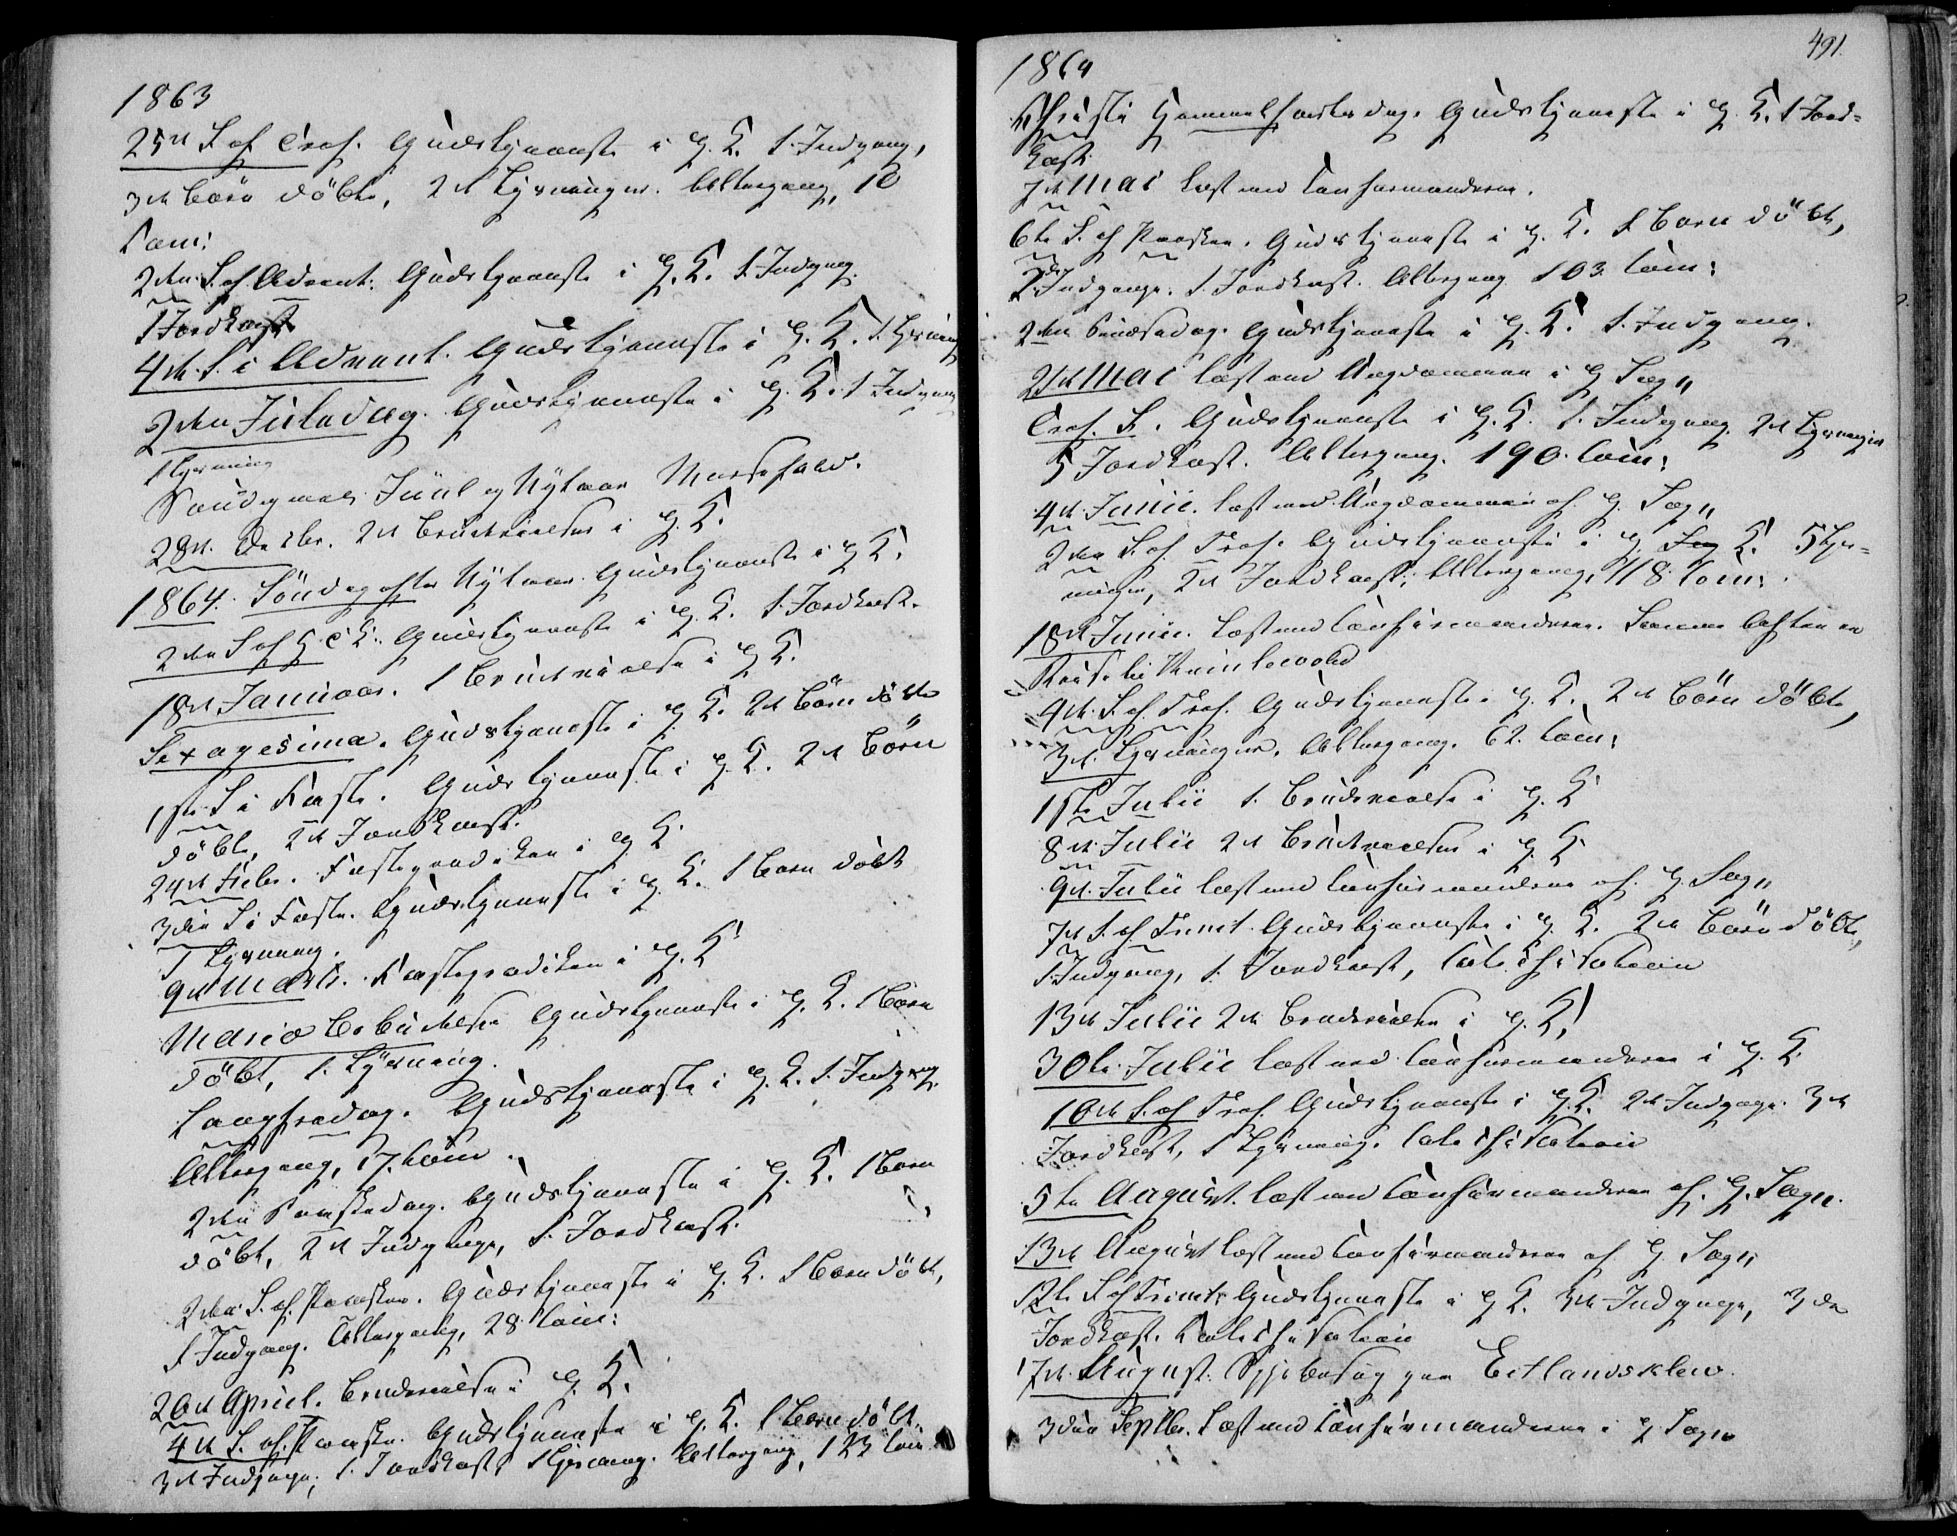 1863
25de S. ef Tref. Gudstjeneste i H. K. 1. Indgang,
3de Børn døbte, 2de Kyrninger. Altergang, 10
Com:
2den S. ef Advent. Gudstjeneste i H. K. 1. Indgang.
1 Jordkast
4de S. i Advent. Gudstjeneste i H. K. 1. Kyrning
2den Juledag. Gudstjeneste i H. K. 1 Indgang
1 Kyrning
Søndagmel. Juul og Nytaar Messefald.
28de Decbr. 2de Brudevielser i H. K.
1864. Søndag efter Nytaar. Gudstjeneste i H. K.
2den S ef H. 3 K. Gudstjeneste i H. K. 1. Jordkast.
18de Januar. 1 Brudevielse i H. K.
Sexagesima. Gudstjeneste i H. K. 2de Børn døbte
1ste S. i Faste. Gudstjeneste i H. K. 2de Børn
døbte, 2de Jordkast.
24de Febr. Fasteprædiken i H. K.
3die S. i Faste. Gudstjeneste i H. K. 1 Barn døbt
1 Kyrning.
9de Marts. Fasteprædiken i H. K.
Mariæ Bebudelse Gudstjeneste i H. K. 1 Barn
døbt, 1. Kyrning.
Langfredag. Gudstjeneste i H. K. 1. Indgang.
Altergang, 17. Com.
2den Paaskedag. Gudstjeneste i H. K. 1 Barn
døbt, 2de Indgange, 1. Jordkast.
2den S. ef. Paasken. Gudstjeneste i H. K. 1 Barn døbt,
1 Indgang. Altergang, 28 Com:
20de April. Brudevielse i H. K.
4de S. ef. Paaske. Gudstjeneste i H. K. 1 Barn døbt.
3de Indgange, 1. Jordkast, 1 Kyrning. Altergang, 123 Com
491.
1864
Christi Himmelfartsdag. Gudstjeneste i H. K. 1 Jord=
kast.
7de Mai læst med Confirmanderne.
6te S. ef Paasken. Gudstjeneste i H. K. 1 Barn døbt,
2de Indgange. 1. Jordkast. Altergang 103 Com:
2den Pindsedag. Gudstjeneste i H. K. 1. Indgang.
21de Mai læst med Ungdommen i H Sogn
Tref. F. Gudstjeneste i H. K. 1. Indgang. 2de Kyrninger
5 Jordkast. Altergang. 190. Com:
4de Junii. læst med Ungdommen af H. Sogn
2den S. ef. Tref. Gudstjeneste i H. K. 5 Kyr=
ninger, 2de Jordkast, Altergang, 118 Com:
18de Junii. Læst med Confirmanderne. Samme Aften en
Reise til
4de S. ef Tref. Gudstjeneste i H. K. 2de Børn døbte,
3de Kyrninger. Altergang. 62. Com:
1ste Julii 1. Brudevielse i H. K
8de Julii 2de Brudevielser i H. K
9de Julii læst med Confirmanderne af H. Sogn
7de S. ef Trinit. Gudstjeneste i H. K. 2de Børn døbte,
1. Indgang, 1. Jordkast, Catechisation
13de Julii 2de Brudevielser i H. K.
30te Julii læst med Confirmanderne i H. K.
10de S. ef Tref. Gudstjeneste i H. K. 2de Indgange. 3de
Jordkast, 1 Kyrning. Catechisation
5te August. læst med Confirmanderne af H. Sogn.
13de August læst med Confirmanderne af H. Sogn
12te S. ef Trinit. Gudstjeneste i H. K. 3de Indgange, 3de
Jordkast. Katechisation
17de August. Sygebesøg paa Eitlandsklev.
3die Septbr. Læst med Confirmanderne i H Sogn